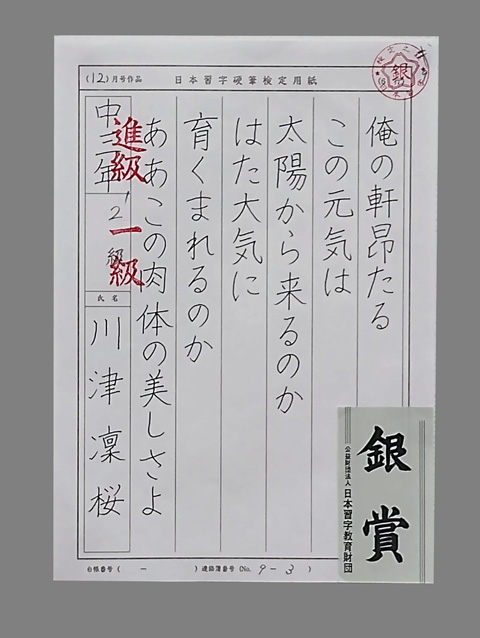 (12)月号作品 日本習字硬筆検定用紙
銀
俺の軒昂たる
この元気は
太陽から来るのか
はた大気に
育くまれるのか
ああこの肉体の美しさよ
中二年
2級
進級 一級
氏名
川津凜桜
台帳番号( - ) 連絡簿番号(No. 9-3 )
銀賞
公益財団法人 日本習字教育財団